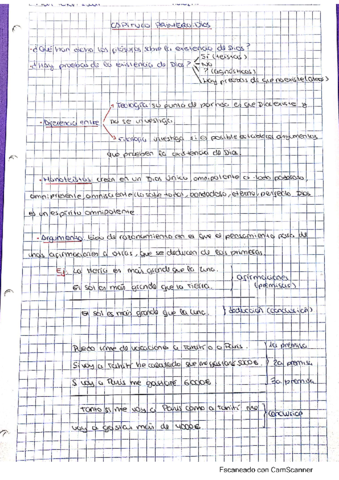 CAPITULO PRIMERO: DIOS
- ¿Qué han dicho los filósofos sobre la existencia de Dios?
- ¿Hay pruebas de la existencia de Dios?
Sí (teístas)
No
? (agnósticos)
Hay pruebas de que no existe (ateos)
- Diferencia entre
Teología su punto de partida es que Dios existe y
no se investiga
Filosofía investiga si es posible encontrar argumentos
que prueben la existencia de Dios.
- Monoteístas creen en un Dios único, omnipotente o todo poderoso,
omnipresente, omnisciente (lo sabe todo), bondadoso, eterno, perfecto. Dios
es un espíritu omnipotente
- Argumento: tipo de razonamiento en el que el pensamiento pasa de
unas afirmaciones a otras, que se deducen de las primeras.
Ej: La tierra es más grande que la luna.
El sol es más grande que la tierra.
afirmaciones
(premisas)
El sol es más grande que la luna.
deducción (conclusión)
Puedo irme de vacaciones a Tahití o a París
1a premisa
Si voy a Tahití me gastaré 5000€
2a premisa
Si voy a París me gastaré 6000€
3a premisa
Tanto si me voy a París como a Tahití me
voy a gastar más de 4000€
conclusión
Escaneado con CamScanner